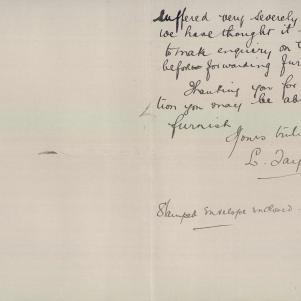 suffered very severely
we have thought it
to make enquiry on
before forwarding fur
Thanking you for
tion you may be ab
furnish
Yours trul
L. Tay
Stamped envelope enclosed